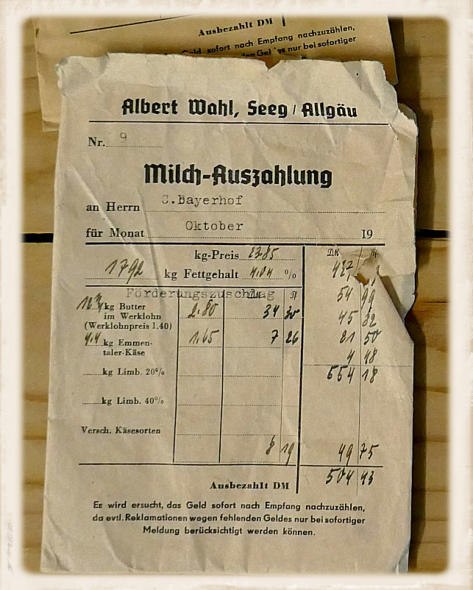 Ausbezahlt DM
Geld sofort nach Empfang nachzuzählen,
nur bei sofortiger
Albert Wahl, Seeg / Allgäu
Nr. 9
Milch-Auszahlung
an Herrn C.Bayerhof
für Monat Oktober 19
kg-Preis
1792 kg Fettgehalt 4.04 % 427
Förderungszuschlag 54 99
kg Butter 2.80 34
im Werklohn 45 32
(Werklohnpreis 1.40)
4.4 kg Emmen- 1.65 7 26 21 50
taler-Käse 4 48
kg Limb. 20% 554 18
kg Limb. 40%
Versch. Käsesorten
8 19 49 75
Ausbezahlt DM 504 43
Es wird ersucht, das Geld sofort nach Empfang nachzuzählen,
da evtl. Reklamationen wegen fehlenden Geldes nur bei sofortiger
Meldung berücksichtigt werden können.